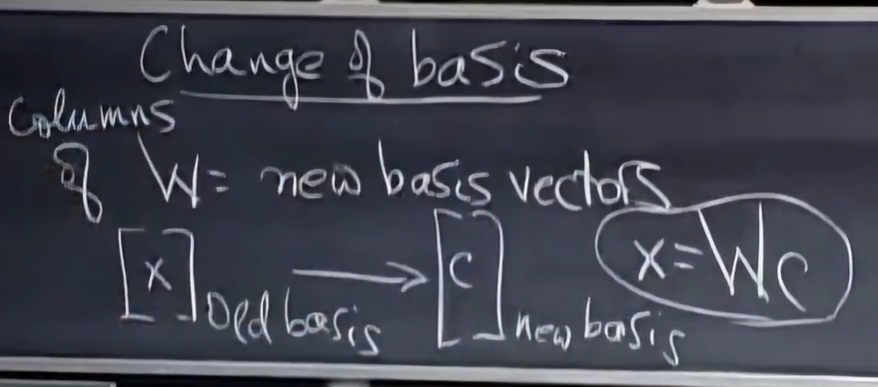 Change of basis
Columns
of W = new basis vectors
[x] old basis → [c] new basis x = Wc